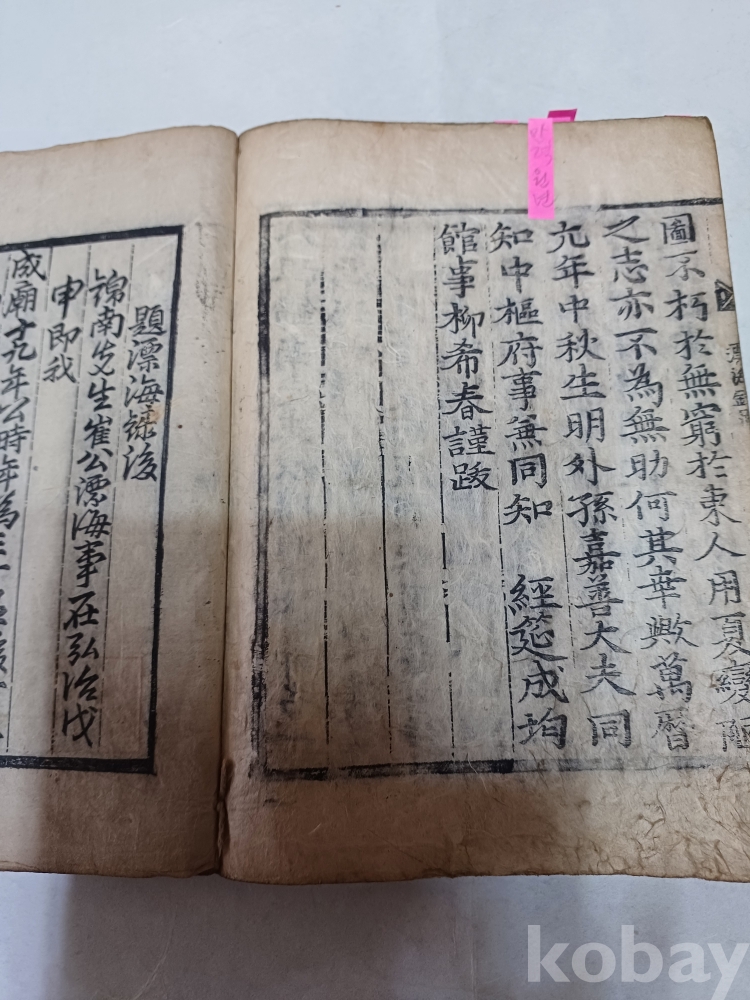 만력 원년
漂海錄
圖不朽於無窮於東人用夏變陋
之志亦不為無助何其幸歟萬曆
元年中秋生明外孫嘉善大夫同
知中樞府事兼同知 經筵成均
館事柳希春謹跋
題漂海錄後
錦南先生崔公漂海事在弘治戊
申即我
成廟十九年公時年為三十
kobay